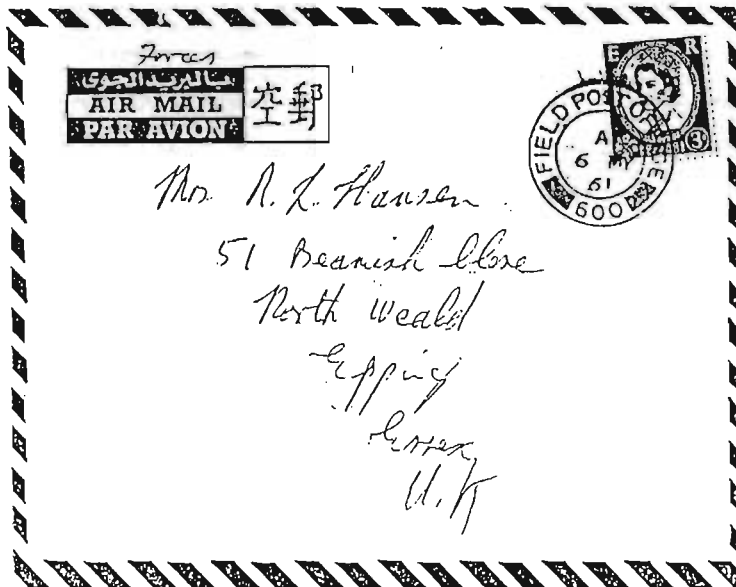 Forces
بالبريد الجوى
AIR MAIL
PAR AVION
空郵
E R
3
FIELD POST OFFICE
A
6
61
600
Mrs R. L. Hansen
51 Beamish Close
North Weald
Epping
Essex,
U.K